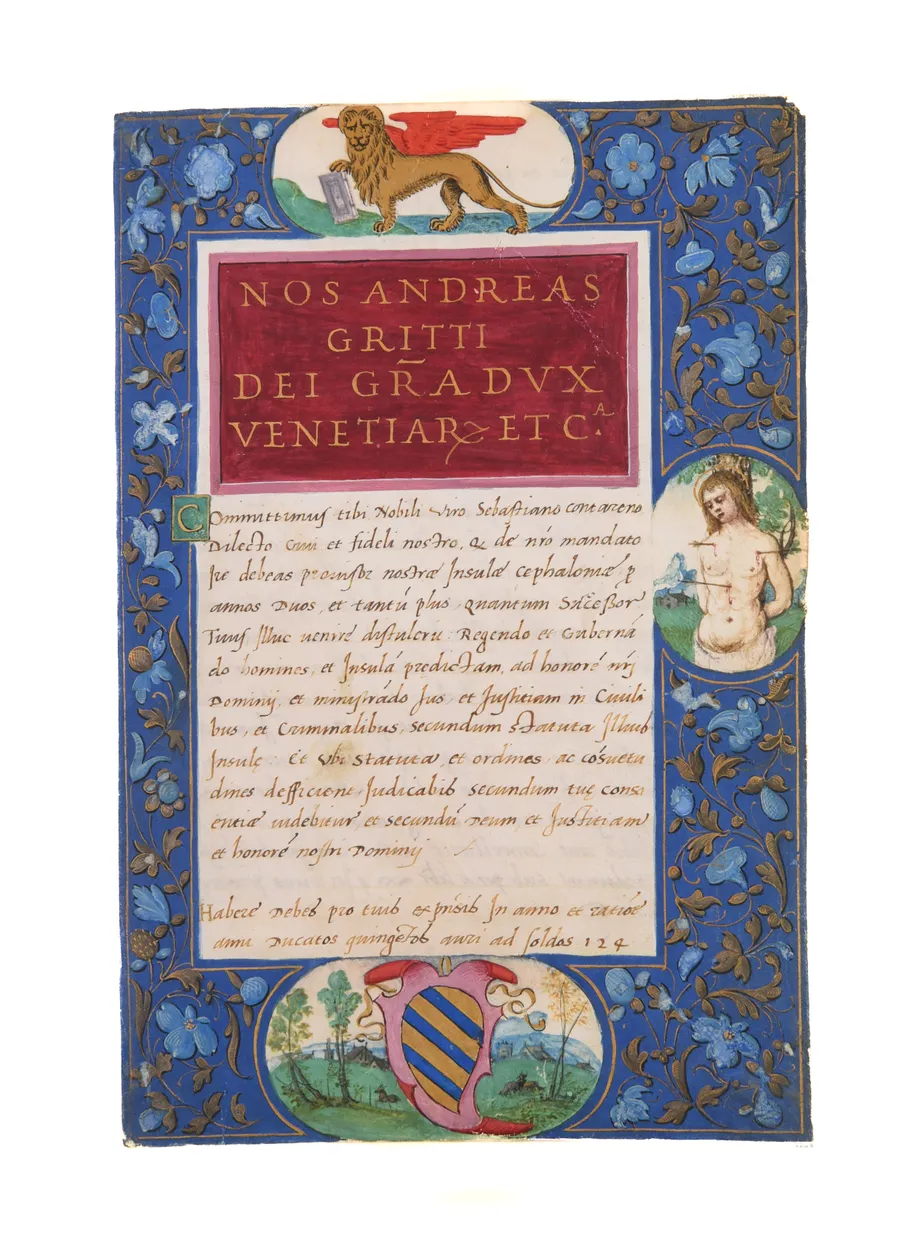 NOS ANDREAS
GRITTI
DEI GR̄A DVX
VENETIARꝝ ET Cᴬ.
Committimus tibi Nobili Viro Sebastiano contareno
Dilecto Civi et fideli nostro, Q de nr̄o mandato
Ire debeas provisor nostræ Insulæ Cephaloniæ p̄
annos Duos, et tantū plus, Quantum Successor
Tuus, Illuc venire distulerit: Regendo et Gubernā
do homines, et Insulā predictam, ad honorē nr̄i
Dominij, et ministrādo Jus, et Justitiam in Civili
bus, et Criminalibus, secundum statuta Illius
Insule: Et Vbi Statuta, et ordines, ac cōsuetu
dines defficient, Judicabis secundum tuę consci
entiæ videbitur, et secundū Deum, et Justitiam
et honorē nostri Dominij
Habere Debes pro tuis expēsis In anno et ratiōe
anni Ducatos quingētos auri ad soldos 124